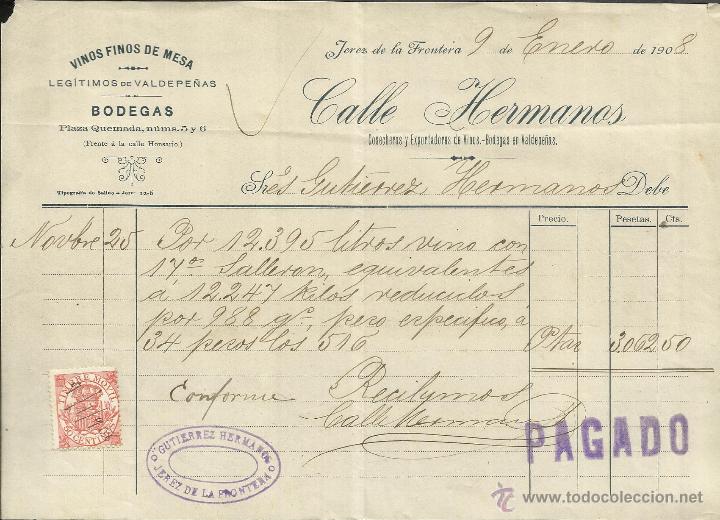 VINOS FINOS DE MESA
LEGÍTIMOS DE VALDEPEÑAS
BODEGAS
Plaza Quemada, núms. 5 y 6
(Frente á la calle Honsario.)
Tipografía de Salido.-Jerez
Jerez de la Frontera 9 de Enero de 1908
Calle Hermanos
Cosecheros y Exportadores de Vinos.-Bodegas en Valdepeñas.
Sres Gutierrez Hermanos Debe
Precio. Pesetas. Cts.
Novbre 25 Por 12.395 litros vino con
17º Salleron, equivalentes
á 12.247 kilos reducidos
por 988 gs, peso especifico, á
34 pesos los 516 Ptas 3.062 50
Conforme Recibimos
Calle Hermanos
TIMBRE MOVIL
10 CENTIMOS
GUTIERREZ HERMANOS
JEREZ DE LA FRONTERA
PAGADO
© www.todocoleccion.net